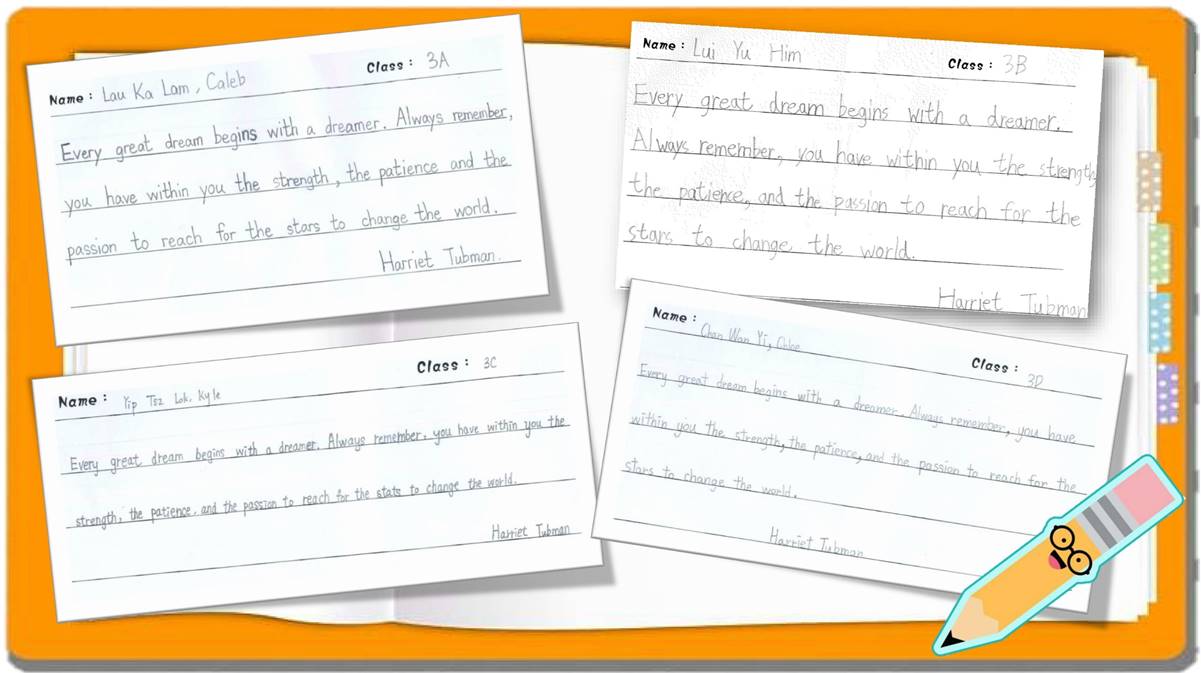 Name : Lau Ka Lam, Caleb Class : 3A
Every great dream begins with a dreamer. Always remember,
you have within you the strength, the patience and the
passion to reach for the stars to change the world.
Harriet Tubman.
Name : Lui Yu Him Class : 3B
Every great dream begins with a dreamer.
Always remember, you have within you the strength,
the patience, and the passion to reach for the
stars to change the world.
Harriet Tubman
Name : Yip Tsz Lok, Kyle Class : 3C
Every great dream begins with a dreamer. Always remember, you have within you the
strength, the patience, and the passion to reach for the stats to change the world.
Harriet Tubman
Name : Chan Wan Yi, Chloe Class : 3D
Every great dream begins with a dreamer. Always remember, you have
within you the strength, the patience, and the passion to reach for the
stars to change the world.
Harriet Tubman